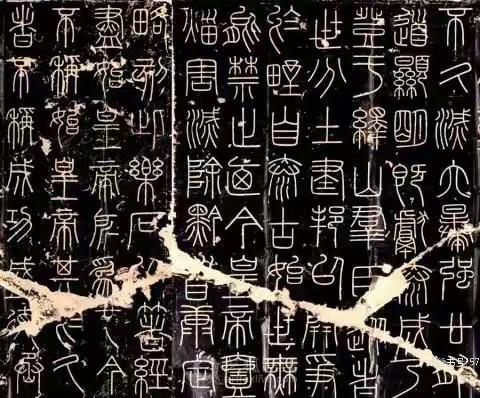 不久滅六暴強廿有
道顯明既獻泰成乃
登于繹山群臣從者
世分土建邦以開爭
於野自泰古始世無
能禁止迺今皇帝壹
烖害滅除黔首康定
略刻此樂石以著經
盡始皇帝所為也今
不稱始皇帝其於久
者不稱成功盛德丞